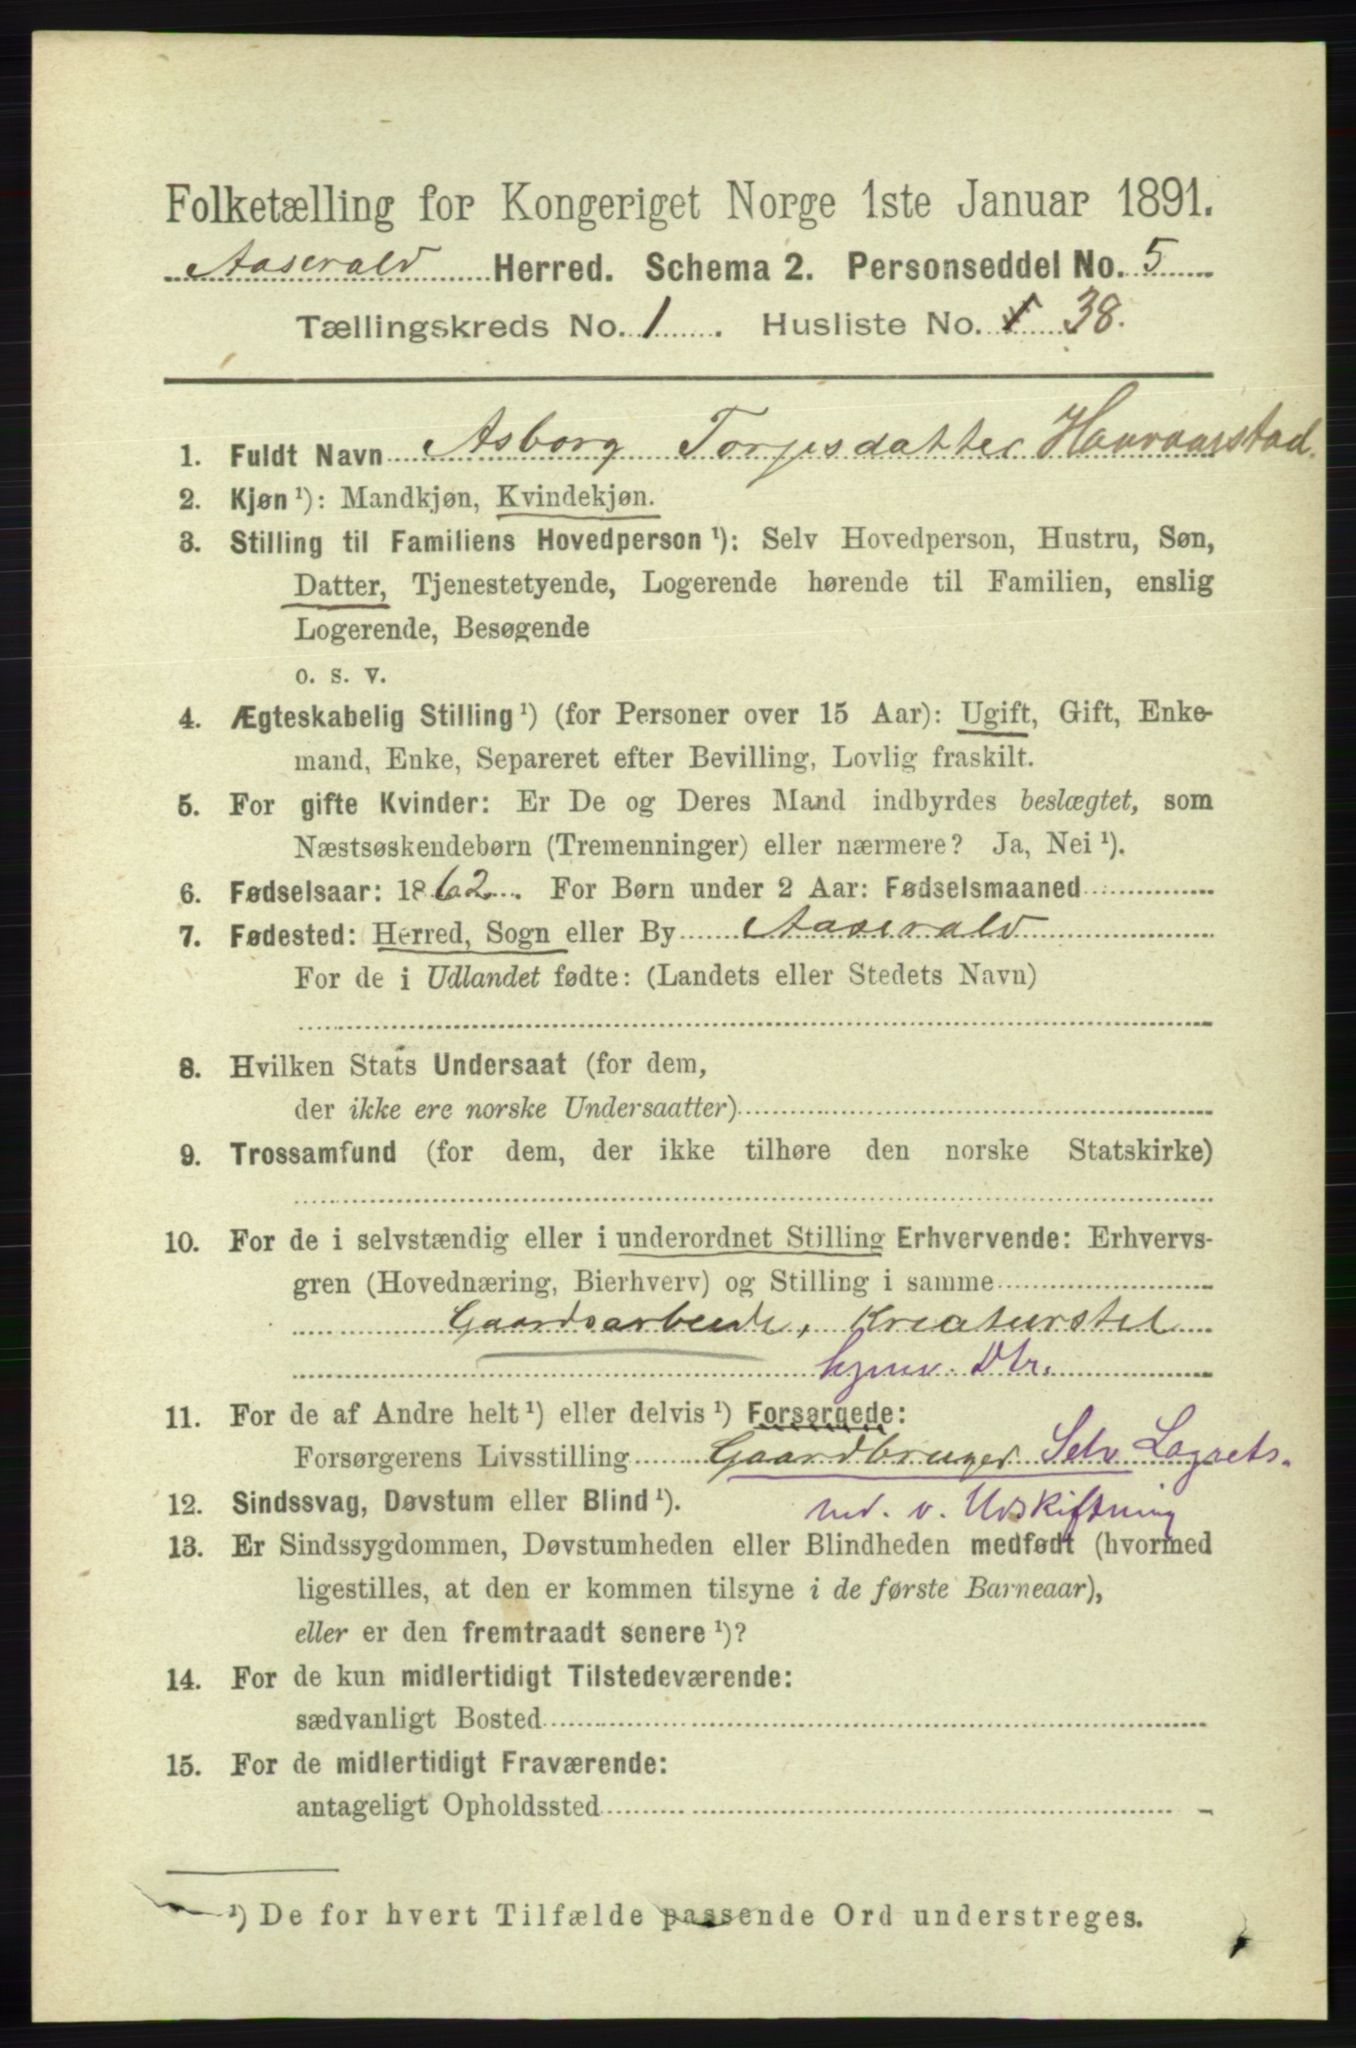 Folketælling for Kongeriget Norge 1ste Januar 1891.
Aaserald Herred. Schema 2. Personseddel No. 5
Tællingskreds No. 1. Husliste No. 38.
1. Fuldt Navn Asborg Torjesdatter Havraastad.
2. Kjøn ¹): Mandkjøn, Kvindekjøn.
3. Stilling til Familiens Hovedperson ¹): Selv Hovedperson, Hustru, Søn,
Datter, Tjenestetyende, Logerende hørende til Familien, enslig
Logerende, Besøgende
o. s. v.
4. Ægteskabelig Stilling ¹) (for Personer over 15 Aar): Ugift, Gift, Enke-
mand, Enke, Separeret efter Bevilling, Lovlig fraskilt.
5. For gifte Kvinder: Er De og Deres Mand indbyrdes beslægtet, som
Næstsøskendebørn (Tremenninger) eller nærmere? Ja, Nei ¹).
6. Fødselsaar: 1862. For Børn under 2 Aar: Fødselsmaaned
7. Fødested: Herred, Sogn eller By Aaserald
For de i Udlandet fødte: (Landets eller Stedets Navn)
8. Hvilken Stats Undersaat (for dem,
der ikke ere norske Undersaatter)
9. Trossamfund (for dem, der ikke tilhøre den norske Statskirke)
10. For de i selvstændig eller i underordnet Stilling Erhvervende: Erhvervs-
gren (Hovednæring, Bierhverv) og Stilling i samme
Gaardsarbeide, Kreaturstel
hjmv. Dtr.
11. For de af Andre helt ¹) eller delvis ¹) Forsørgede:
Forsørgerens Livsstilling Gaardbruger Selv Lagrets.
12. Sindssvag, Døvstum eller Blind ¹). md. v. Udskiftning
13. Er Sindssygdommen, Døvstumheden eller Blindheden medfødt (hvormed
ligestilles, at den er kommen tilsyne i de første Barneaar),
eller er den fremtraadt senere ¹)?
14. For de kun midlertidigt Tilstedeværende:
sædvanligt Bosted
15. For de midlertidigt Fraværende:
antageligt Opholdssted
¹) De for hvert Tilfælde passende Ord understreges.